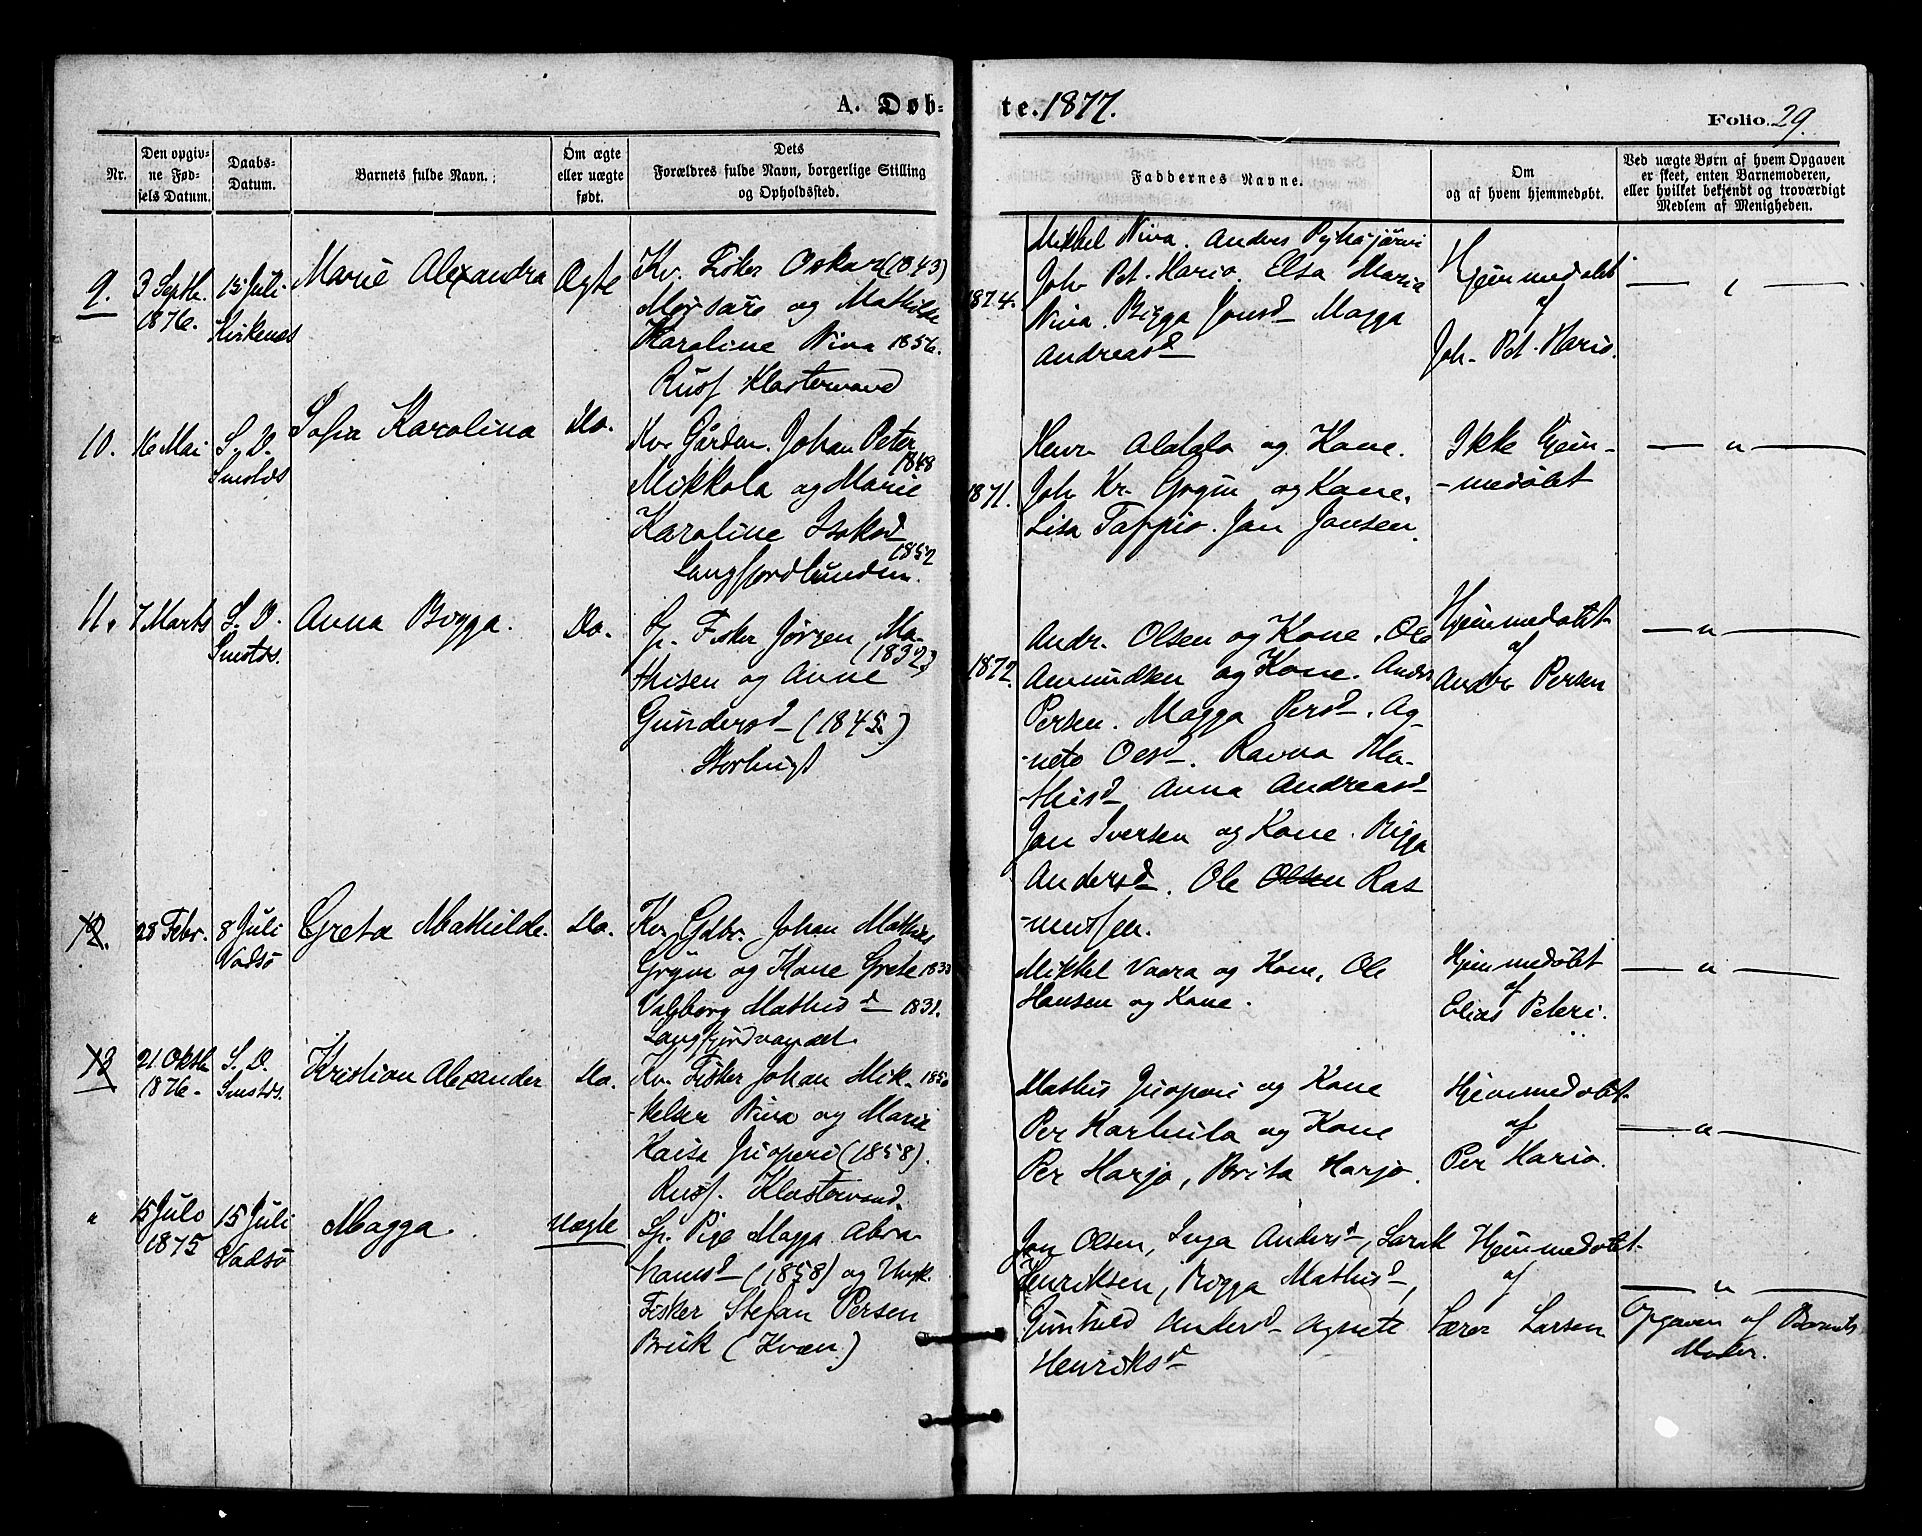 A. Døb-
te. 1877.
Folio. 29.
Nr.
Den opgiv-
ne Fød-
sels Datum.
Daabs-
Datum.
Barnets fulde Navn.
Om ægte
eller uægte
født.
Dets
Forældres fulde Navn, borgerlige Stilling
og Opholdssted.
Faddernes Navne.
Om
og af hvem hjemmedøbt.
Ved uægte Børn af hvem Opgaven
er skeet, enten Barnemoderen,
eller hvilket bekjendt og troværdigt
Medlem af Menigheden.
9.
3 Septbr.
1876.
15 Juli
Kirkenes
Marie Alexandra
Ægte
Kv. Fisker Oskar (1843)
og Mathilde
Karoline Niva 1856.
Russ. Klostervand
1874.
Mikkel Niva. Anders Pyhajärvi
Joh. Pet. Hario. Elsa Maria
Niva. Bigga Jonsd Magga
Andreasd
Hjemmedøbt
af
Joh. Pet. Hario.
10.
16 Mai
S. D.
Smstds
Sofia Karolina
Do.
Kv. Gårdm. Johan Peter
1848
Mikkola og Marie
Karoline Isaksd
1852
Langfjordbunden.
1871.
Henr Alatalo og Kone.
Joh Kr. Grøin og Kone.
Lisa Tappio. Jon Jonsen.
Ikke Hjem-
-medøbt
— " —
11.
7 Marts
S. D.
Smstds.
Anna Bigga.
Do.
Lp. Fisker Jørgen Ma-
(1832)
thisen og Anne
Gundersd (1845)
1872.
Andr. Olsen og Kone. Ole
Amundsen og Kone. Andr
Persen. Magga Persd. Ag-
-nete Olesd. Ravna Ma-
-thisd Anna Andreasd
Jon Iversen og Kone. Bigga
Andersd. Ole Olsen Ras
-mussen.
Hjemmedøbt
af
Andr Persen
— " —
12.
28 Febr.
8 Juli
Vadsø
Greta Mathilde.
Do.
Kv. Gdbr. Johan Mathias
Grøin og Kone Grete
Valborg Mathisd
Langfjordvandet.
Mikkel Vaara og Kone, Ole
Hansen og Kone.
Hjemmedøbt
af
Elias Peteri.
— " —
13
21 Oktbr
1876.
S. D.
Smstds.
Kristian Alexander
Do.
Kv. Fisker Johan Mik- 1850
-kelsen Niva og Marie
Kaisa Juoperi (1858).
Russ. Klostervand.
Mathis Juoperi og Kone
Per Karhula og Kone
Per Harjo, Brita Harjo.
Hjemmedøbt
af
Per Hario.
— " —
"
15 Juli
1875
15 Juli
Vadsø
Magga.
Uægte
Lp. Pige Magga Abra-
hamsd (1858) og Ungk.
Fisker Stefan Persen
(Kvæn.)
Jon Olsen, Inga Andersd, Sarak
Henriksen, Bigga Mathisd,
Gunhild Andersd Agnete
Henriksd
Hjemmedøbt
af
Lærer Larsen
— " —
Opgaven af Barnets
Moder.